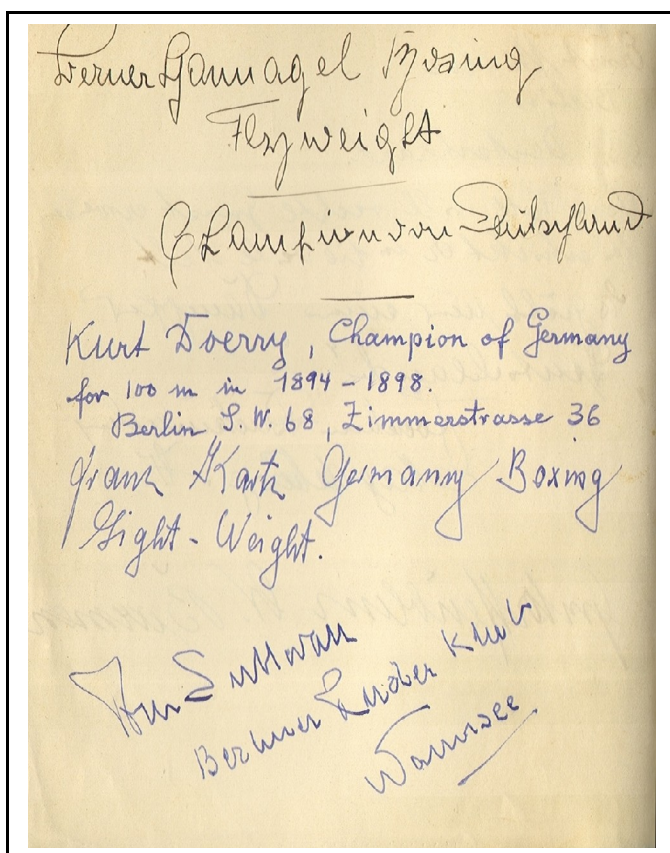 Werner Spannagel Boxing
Flyweight
Champion von Deutschland
Kurt Doerry, Champion of Germany
for 100 m in 1894 – 1898.
Berlin S.W. 68, Zimmerstrasse 36
Franz Kartz Germany Boxing
Light-Weight.
Tom Sullivan
Berliner Ruder Klub
Wannsee